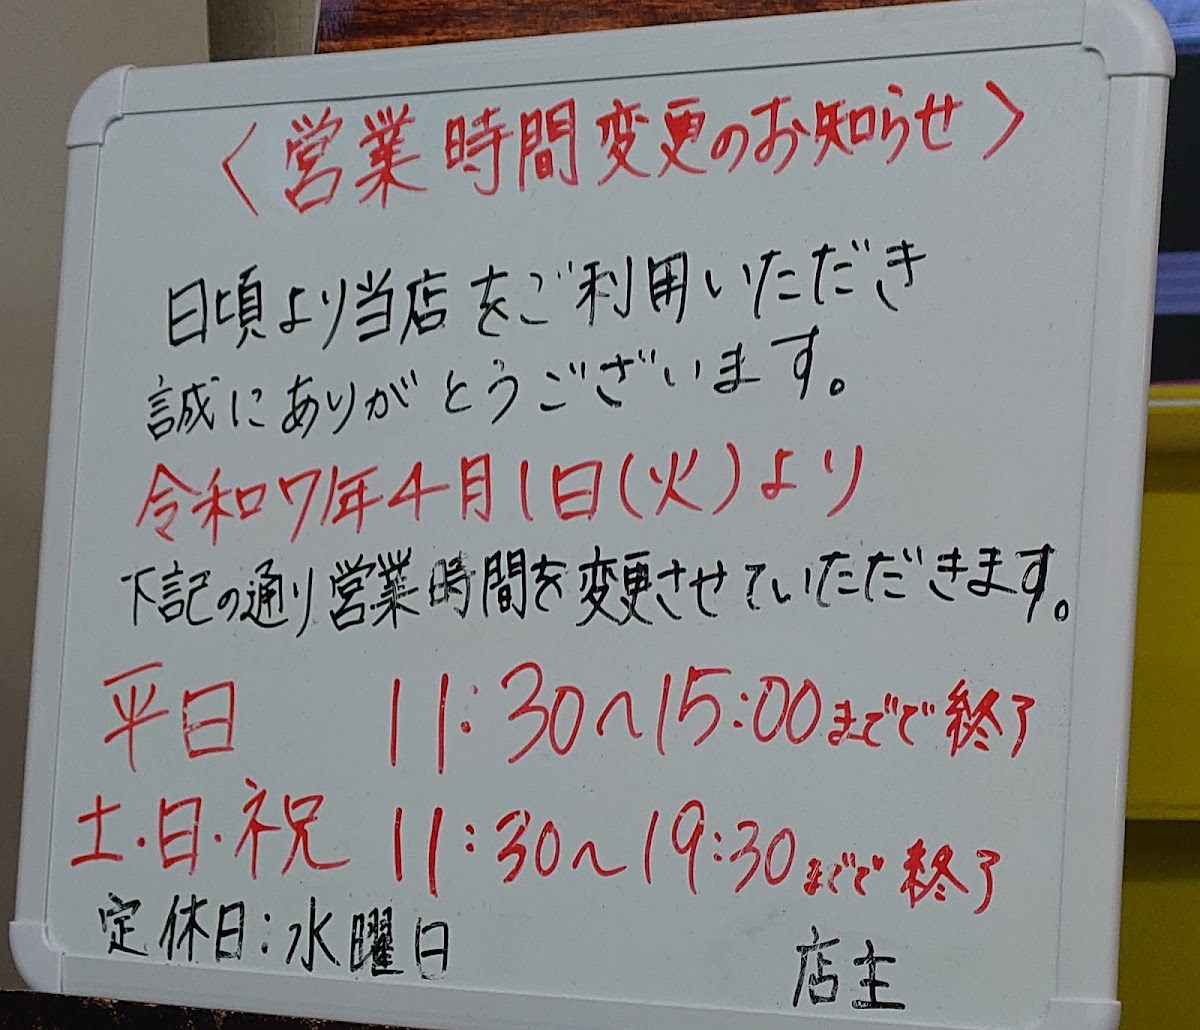 〈営業時間変更のお知らせ〉
日頃より当店をご利用いただき
誠にありがとうございます。
令和7年4月1日(火)より
下記の通り営業時間を変更させていただきます。
平日 11:30〜15:00までで終了
土・日・祝 11:30〜19:30までで終了
定休日:水曜日 店主